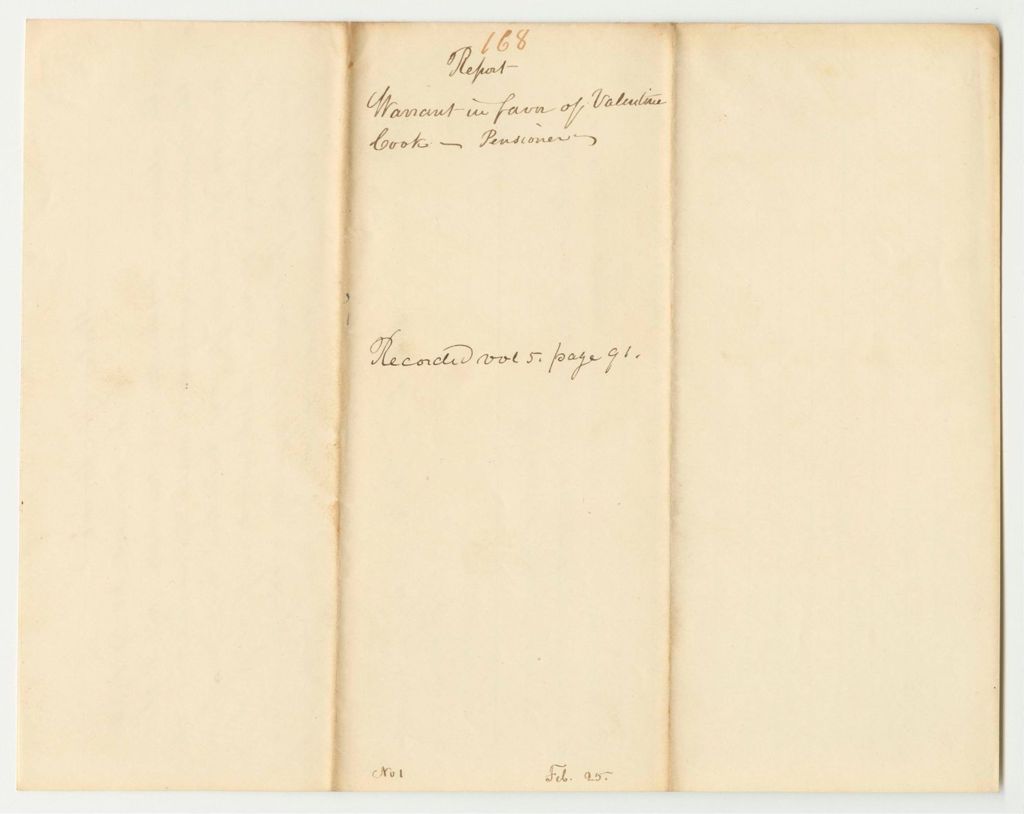 168
Report
Warrant in favor of Valentine
Cook — Pensioner —
Recorded vol 5. page 91.
No 1 Feb. 25.